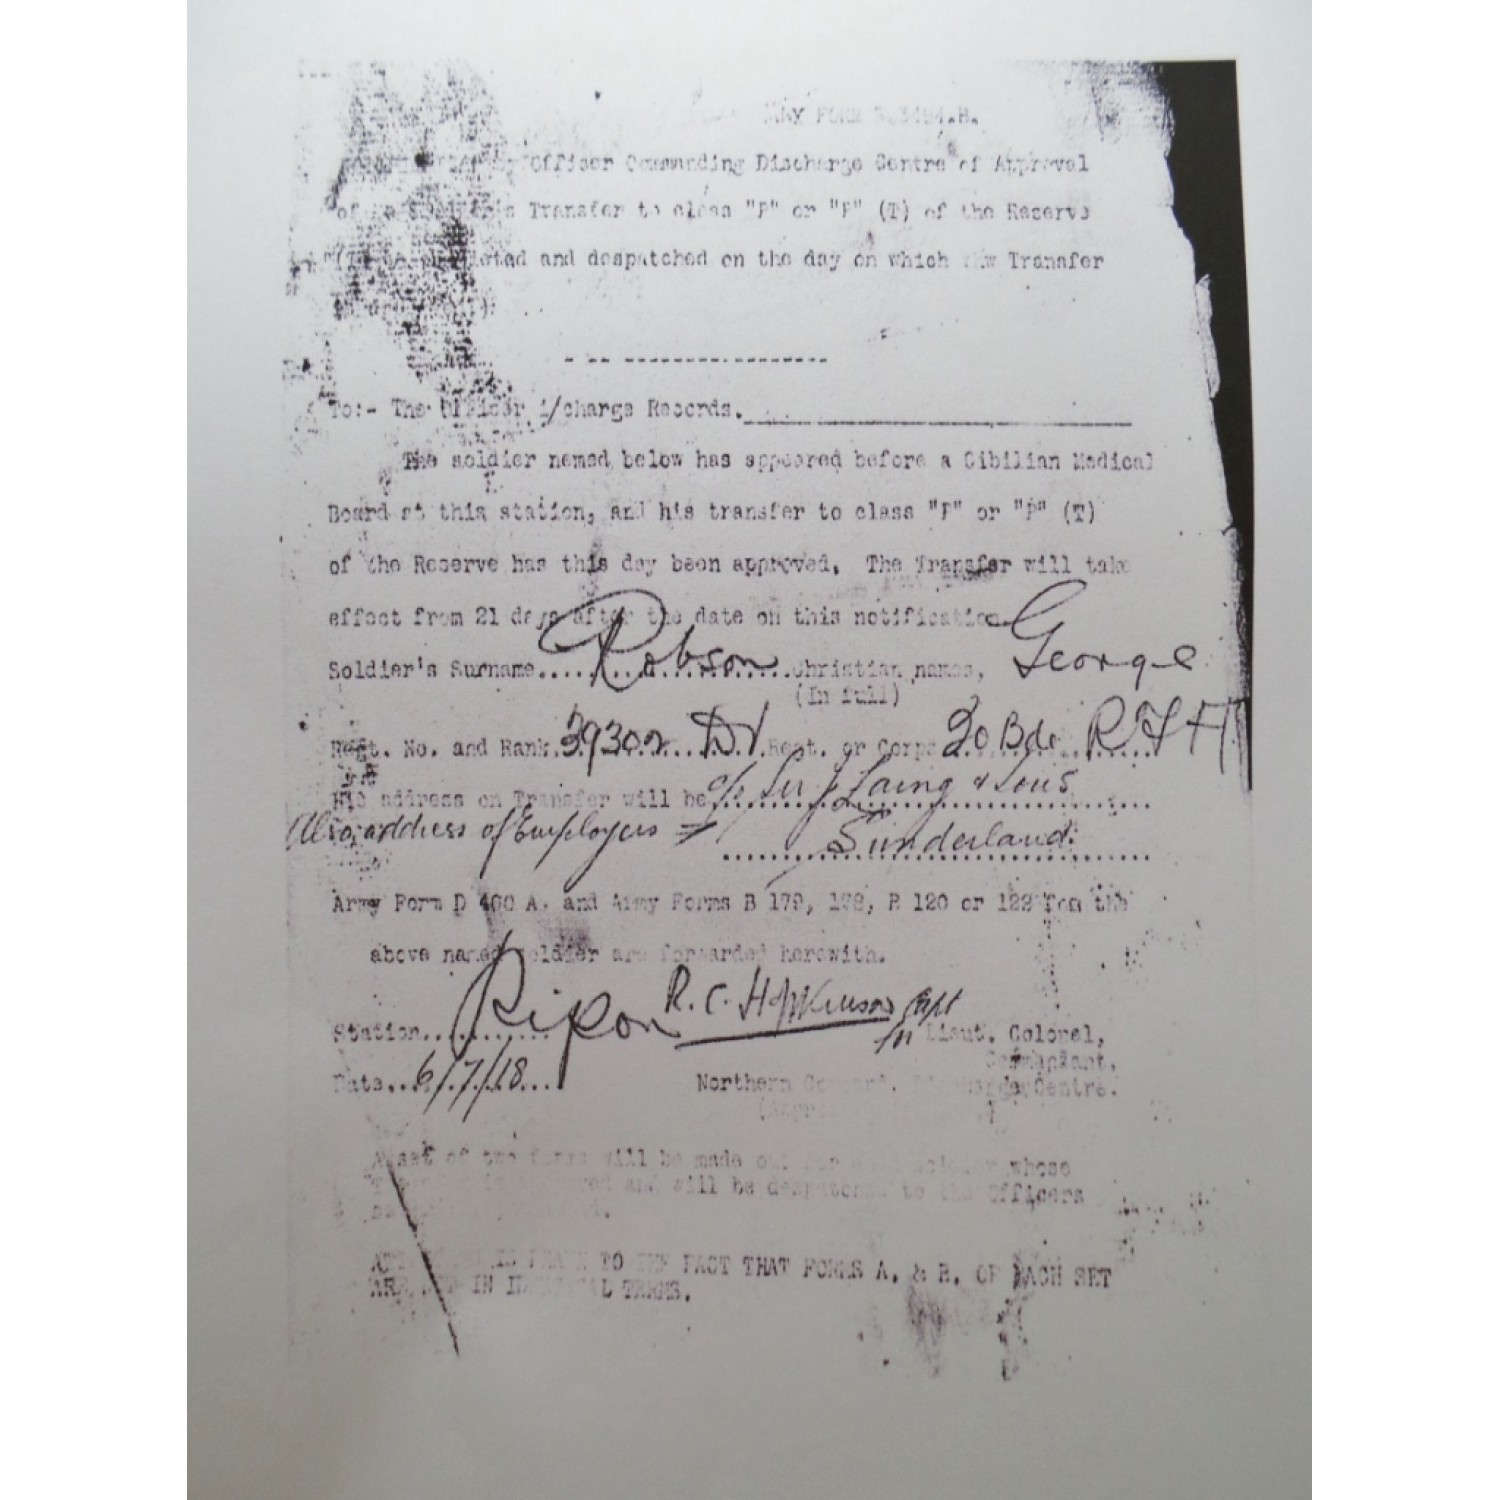 FORM
Officer Commanding Discharge Centre of Approval
of Soldier's Transfer to class "P" or "P" (T) of the Reserve
and despatched on the day on which the Transfer
To:- The Officer i/charge Records.
The soldier named below has appeared before a Cibilian Medical
Board at this station, and his transfer to class "P" or "P" (T)
of the Reserve has this day been approved. The Transfer will take
effect from 21 days after the date on this notification
Soldier's Surname..........Robson..........Christian names, George
(In full)
Regt. No. and Rank. 39302 Dr Regt. or Corps 30 Bde RFA
His address on Transfer will be c/o Sir J Laing & Sons
Also address of Employers Sunderland.
Army Form D 400 A. and Army Forms B 179, 178, B 120 or 122 for the
above named soldier are forwarded herewith.
Station..........Ripon R. C. Hopkinson Capt
for Lieut. Colonel,
Commandant.
Date... 6/7/18.... Northern Command. Discharge Centre.
A set of two forms will be made out for each soldier whose
and will be despatched to the Officers
TO THE FACT THAT FORMS A. & B. OF EACH SET
ARE IN IDENTICAL TERMS.